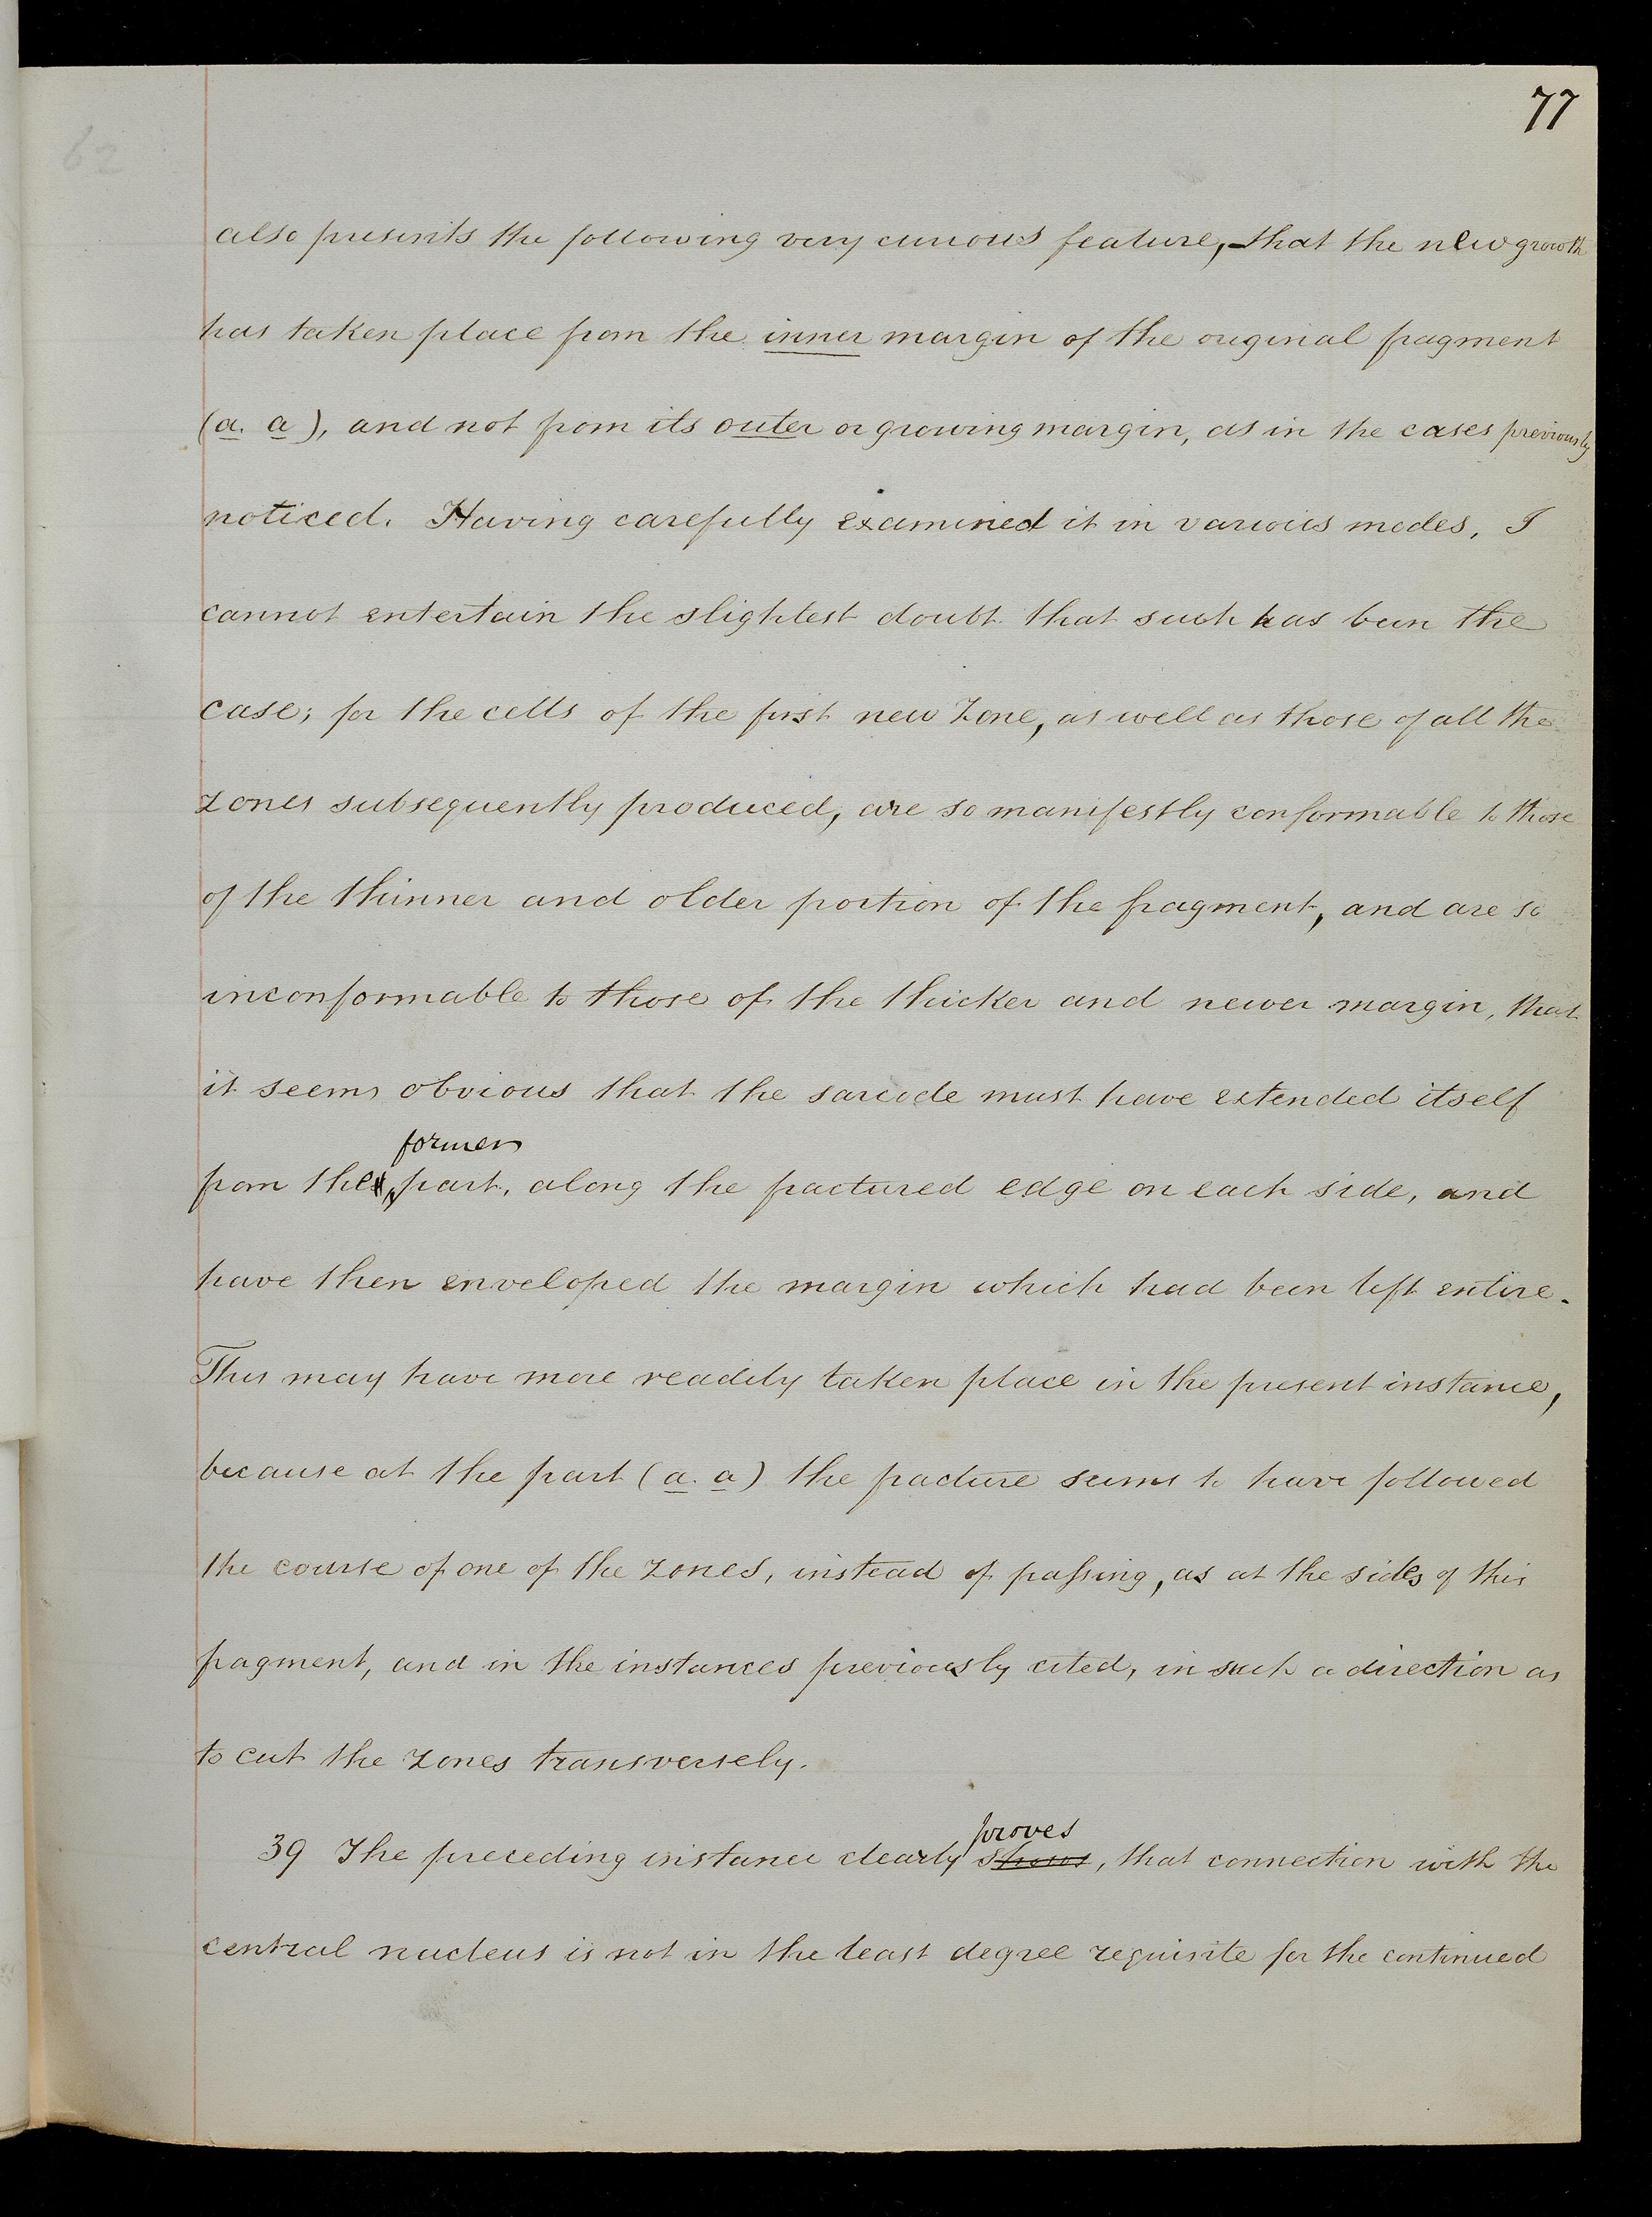 77
62
also presents the following very curious feature,—that the new growth
has taken place from the inner margin of the original fragment
(a. a), and not from its outer or growing margin, as in the cases previously
noticed. Having carefully examined it in various modes, I
cannot entertain the slightest doubt that such has been the
case; for the cells of the first new zone, as well as those of all the
zones subsequently produced, are so manifestly conformable to those
of the thinner and older portion of the fragment, and are so
inconformable to those of the thicker and newer margin, that
it seems obvious that the sarcode must have extended itself
former
from the part, along the fractured edge on each side, and
have then enveloped the margin which had been left entire.
This may have more readily taken place in the present instance,
because at the part (a. a) the fracture seems to have followed
the course of one of the zones, instead of passing, as at the sides of this
fragment, and in the instances previously cited, in such a direction as
to cut the zones transversely.
proves
39 The preceding instance clearly shows, that connection with the
central nucleus is not in the least degree requisite for the continued